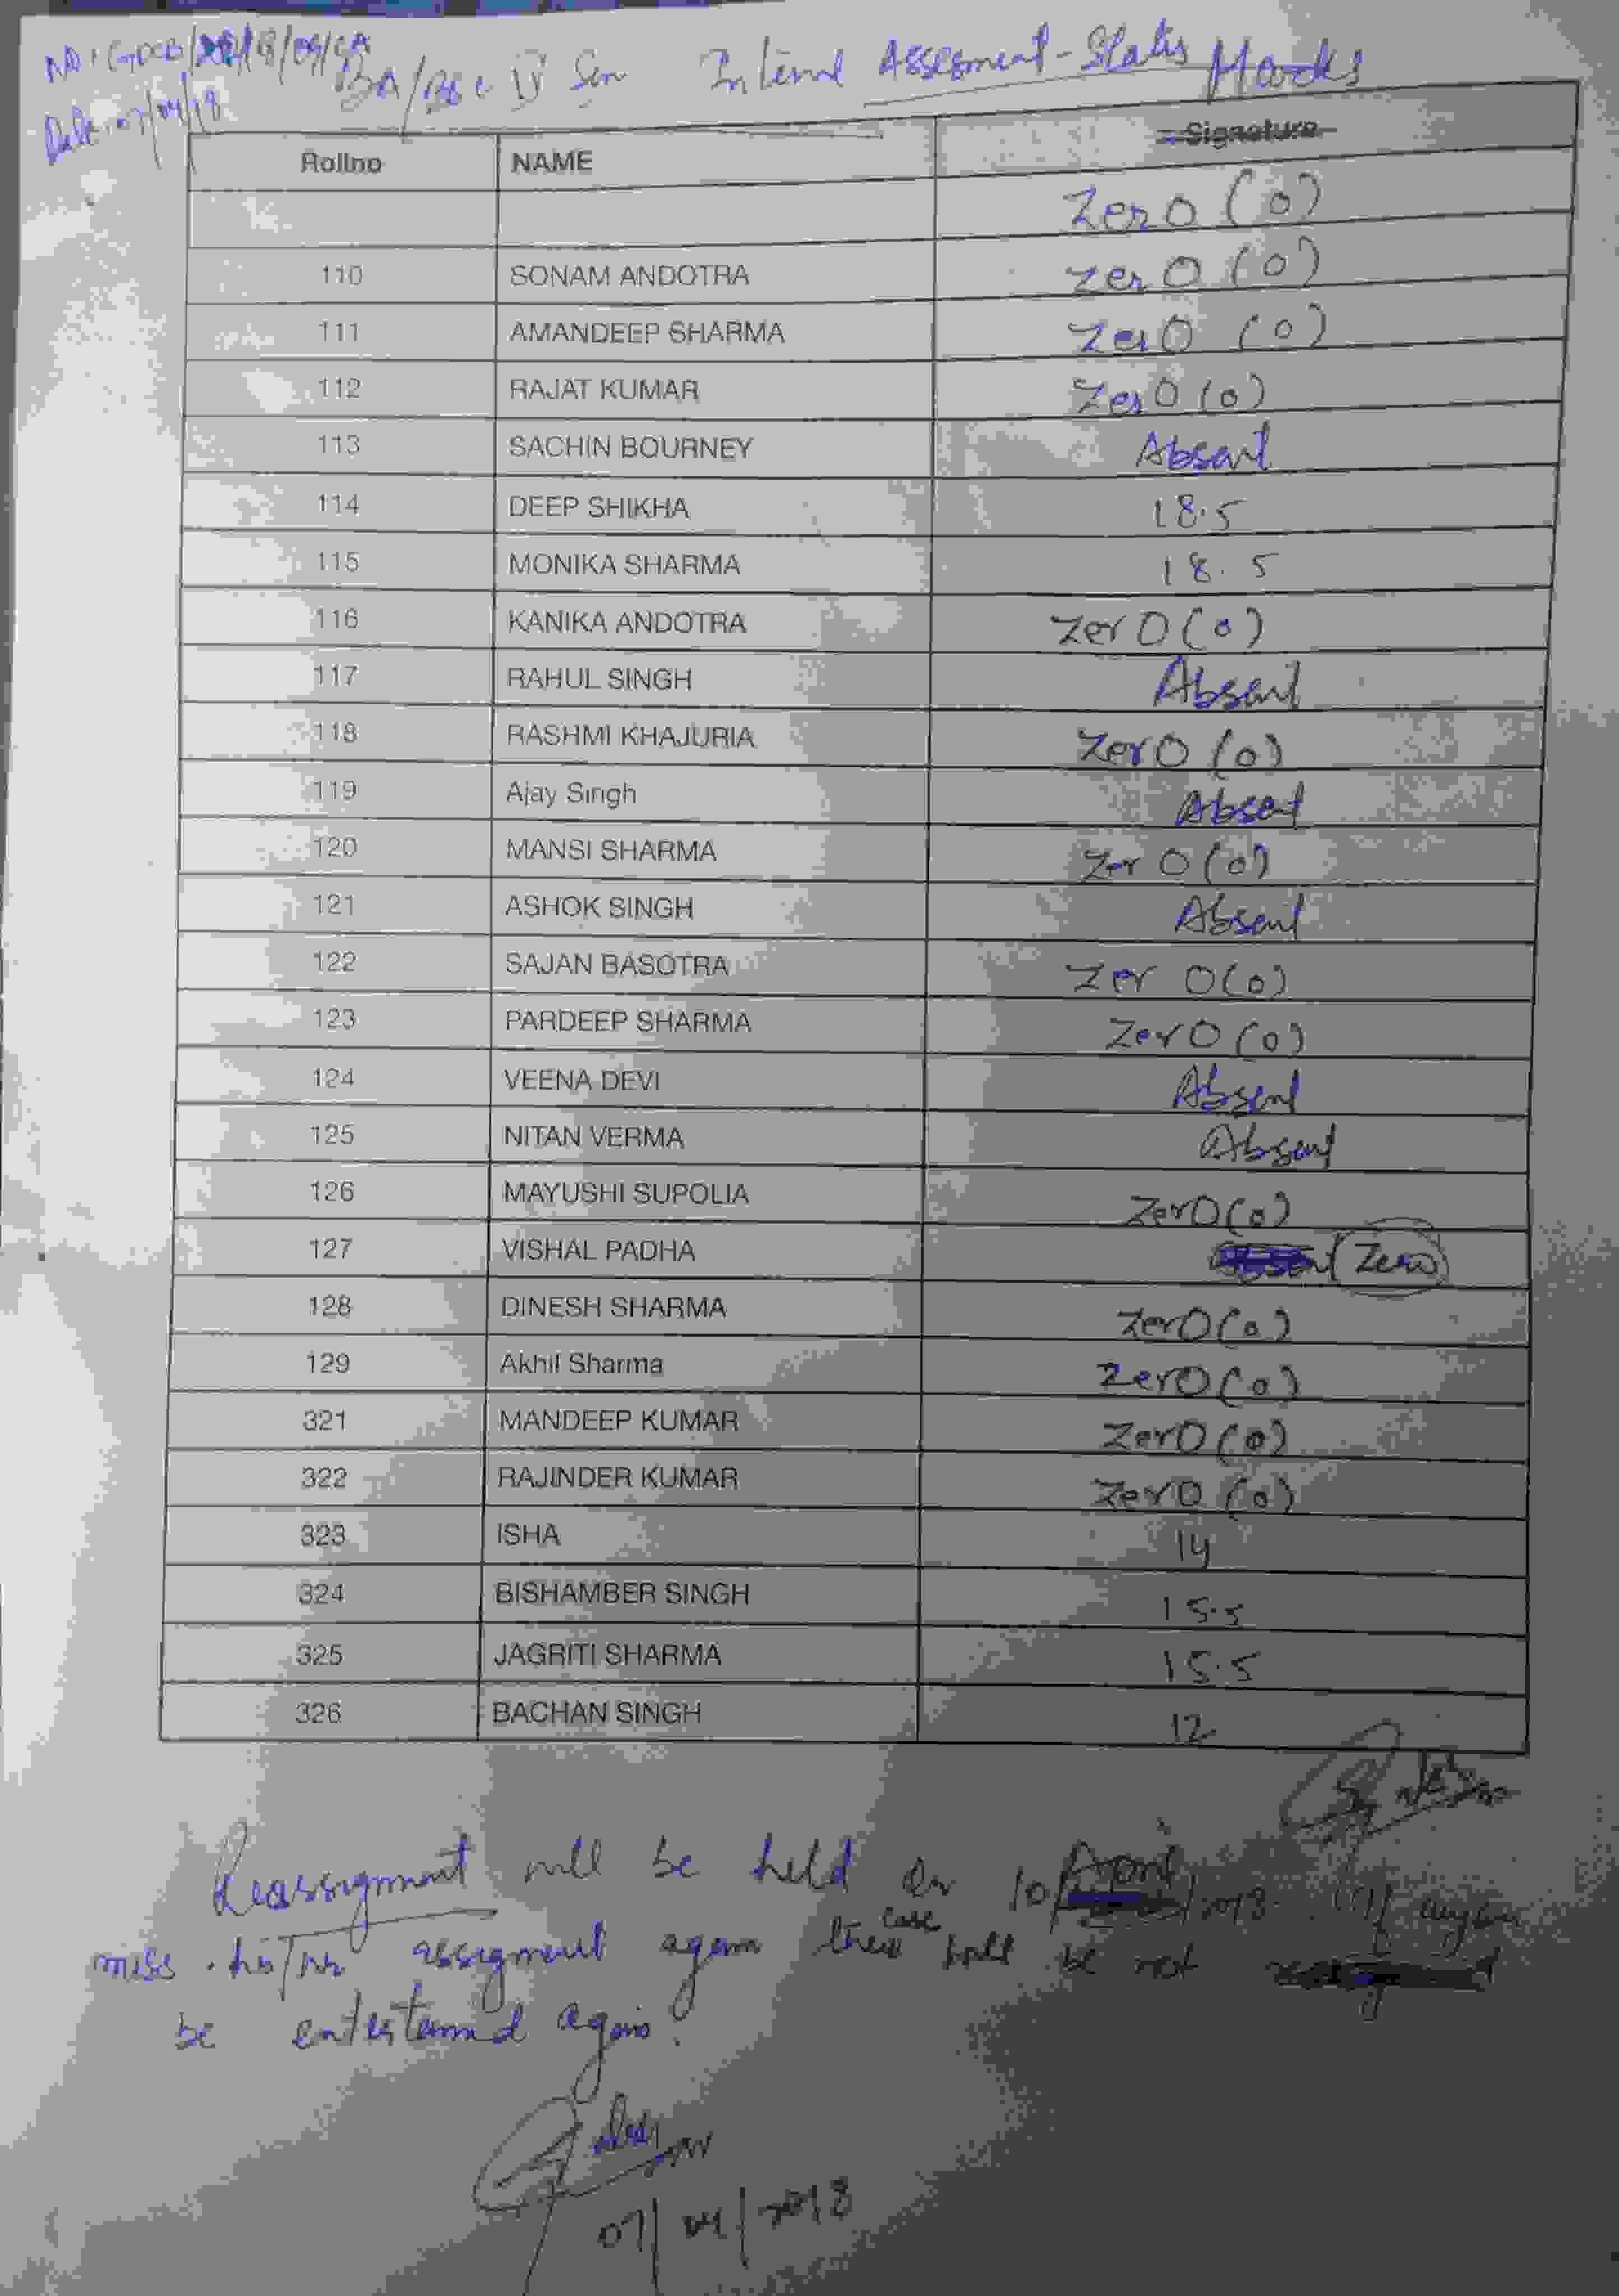 Date: 07/04/18 BA/BSc IV Sem Internal Assesment - Status Marks
Rollno NAME Signature
Zero (0)
110 SONAM ANDOTRA Zero (0)
111 AMANDEEP SHARMA Zero (0)
112 RAJAT KUMAR Zero (0)
113 SACHIN BOURNEY Absent
114 DEEP SHIKHA 18.5
115 MONIKA SHARMA 18.5
116 KANIKA ANDOTRA Zero (0)
117 RAHUL SINGH Absent
118 RASHMI KHAJURIA Zero (0)
119 Ajay Singh Absent
120 MANSI SHARMA Zero (0)
121 ASHOK SINGH Absent
122 SAJAN BASOTRA Zero (0)
123 PARDEEP SHARMA Zero (0)
124 VEENA DEVI Absent
125 NITAN VERMA Absent
126 MAYUSHI SUPOLIA Zero (0)
127 VISHAL PADHA Zero
128 DINESH SHARMA Zero (0)
129 Akhil Sharma Zero (0)
321 MANDEEP KUMAR Zero (0)
322 RAJINDER KUMAR Zero (0)
323 ISHA 14
324 BISHAMBER SINGH 15.5
325 JAGRITI SHARMA 15.5
326 BACHAN SINGH 12
Reassignment will be held on 10/April/2018. If anyone
miss his/her assigment again their case will be not
be entertained again.
07/04/2018